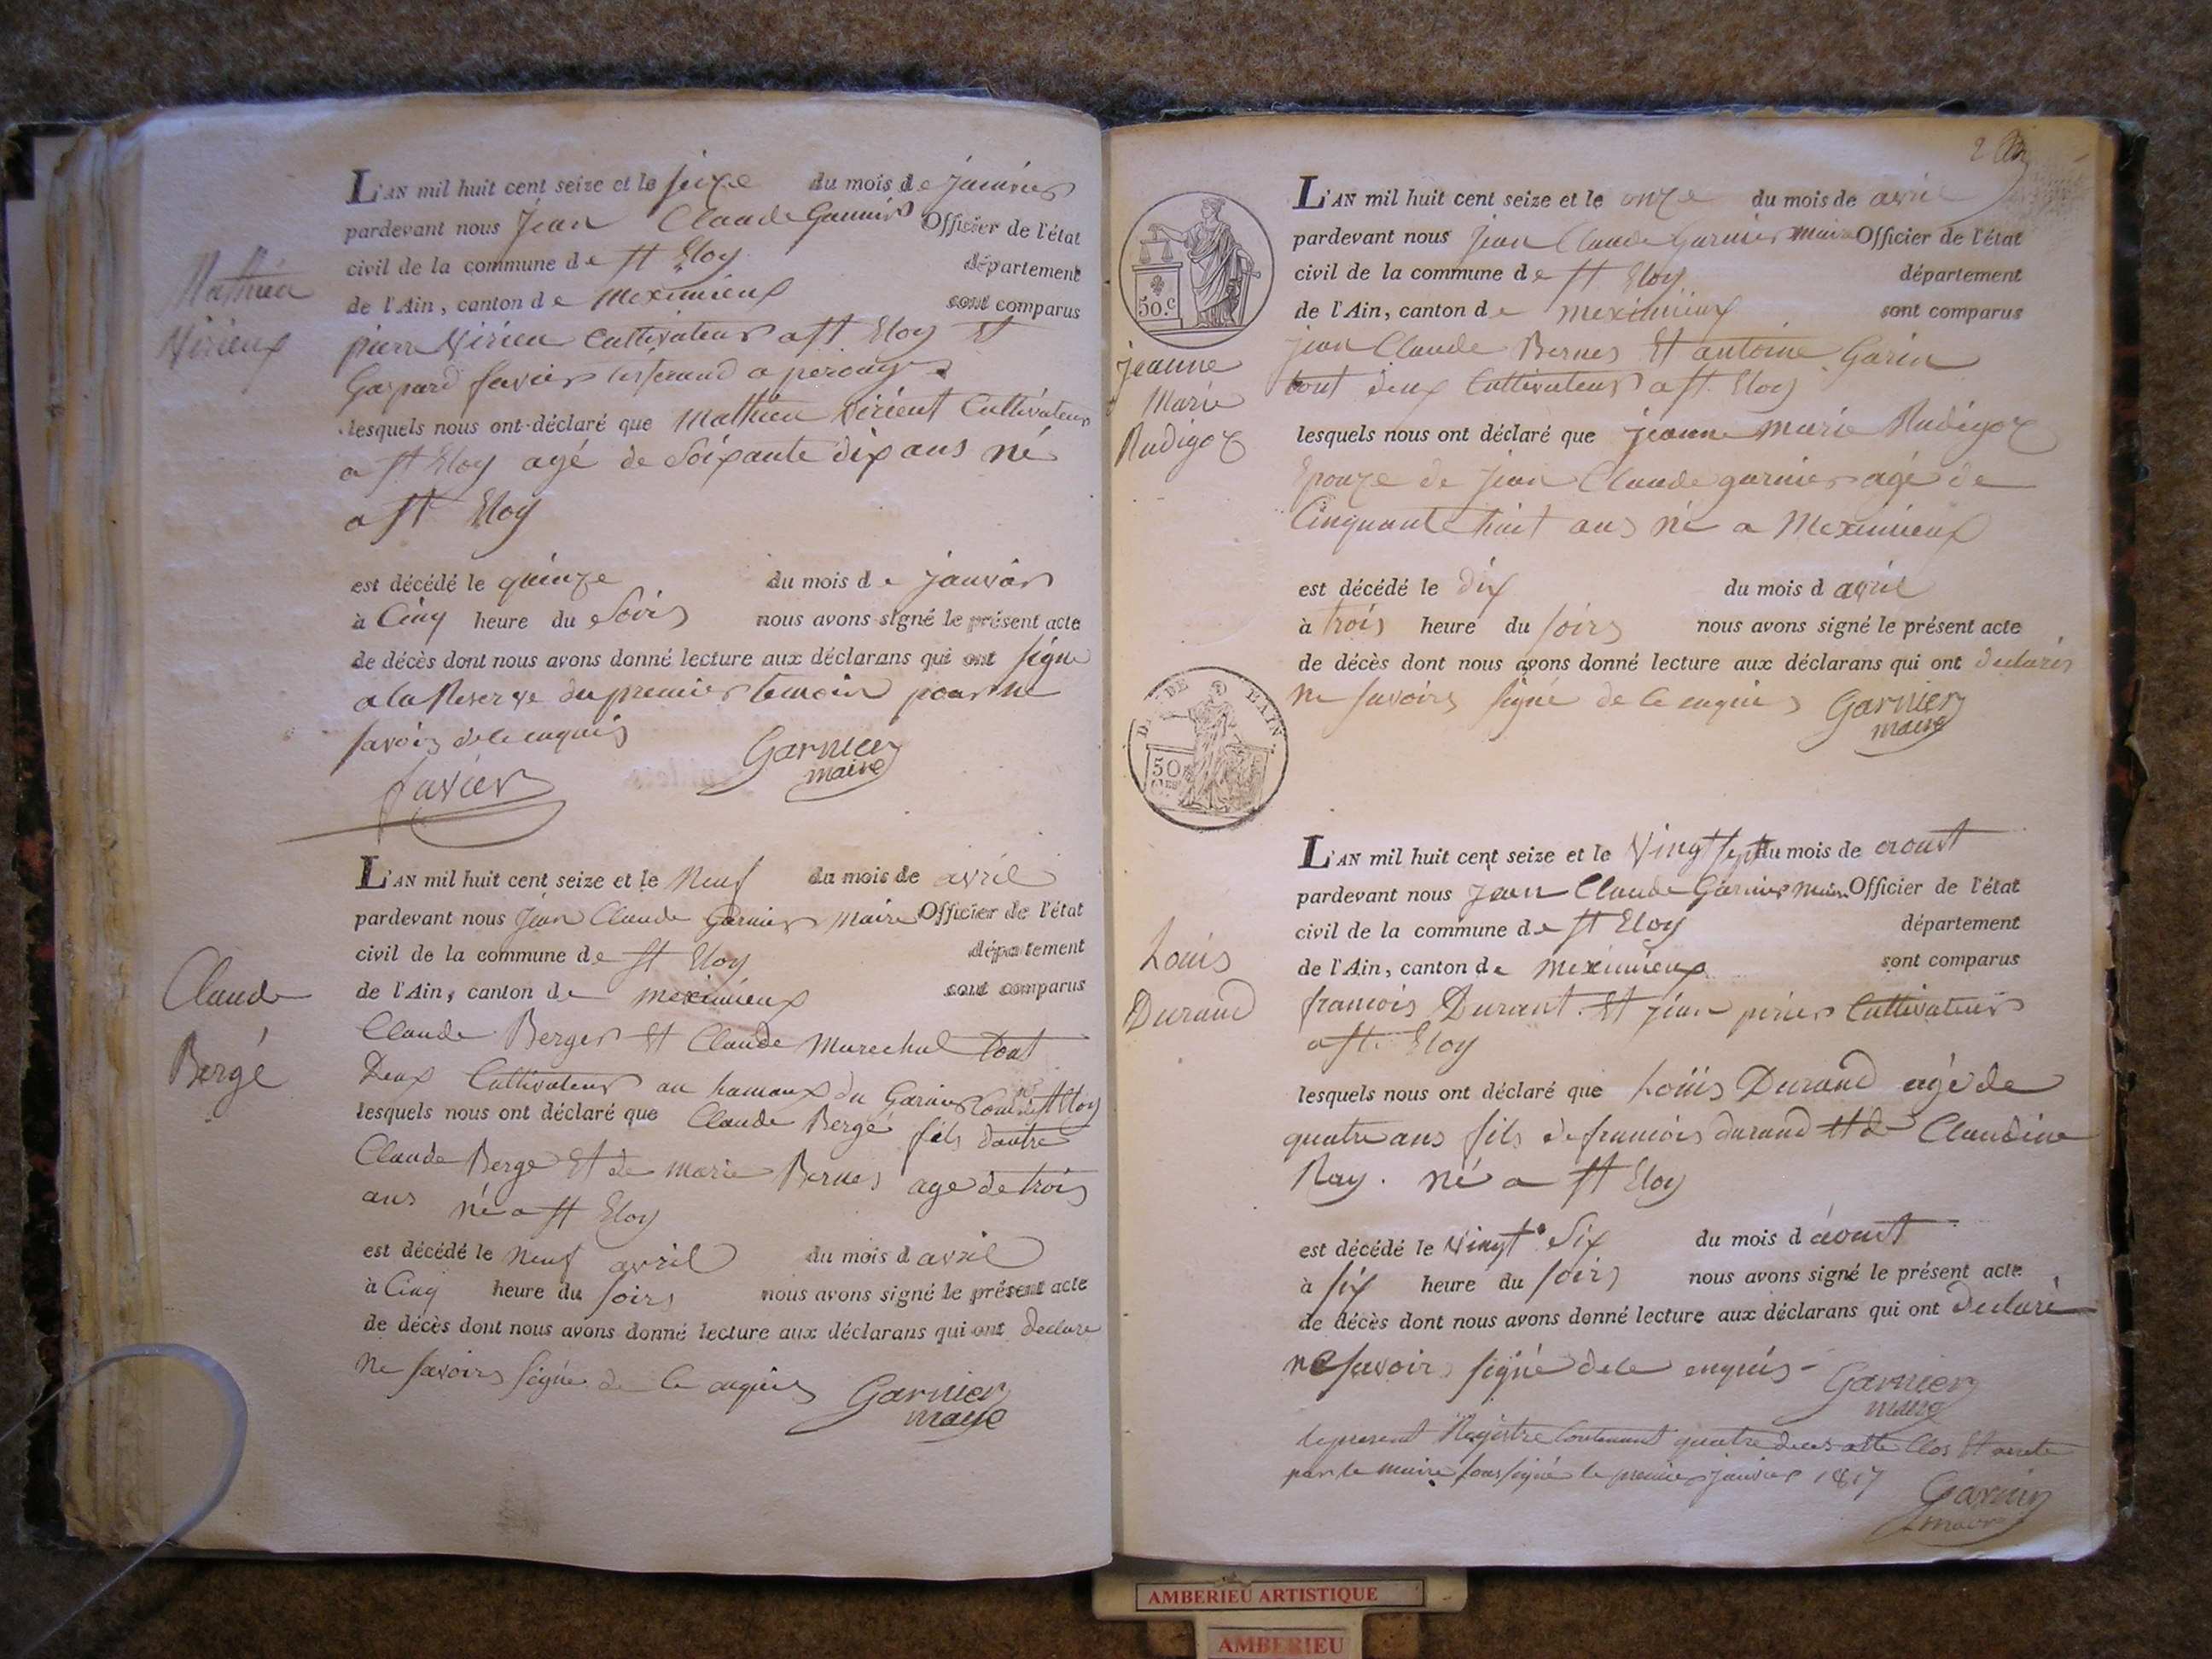 Mathieu
Virieux
L'AN mil huit cent seize et le seize du mois de janvier
pardevant nous Jean Claude Garnier Officier de l'état
civil de la commune de St Eloy département
de l'Ain, canton de Meximieux sont comparus
pierre Virieu Cultivateur a St Eloy Et
Gaspard favier a perouge
lesquels nous ont déclaré que Mathieu Virieut Cultivateur
a St Eloy agé de Soixante dix ans né
a St Eloy
est décédé le quinze du mois de janvier
à Cinq heure du Soir nous avons signé le présent acte
de décès dont nous avons donné lecture aux déclarans qui ont signé
a la Reserve du premier temoin pour ne
savoir de ce enquis
favier
Garnier
maire
Claude
Bergé
L'AN mil huit cent seize et le Neuf du mois de avril
pardevant nous Jean Claude Garnier Maire Officier de l'état
civil de la commune de St Eloy département
de l'Ain, canton de meximieux sont comparus
Claude Berger Et Claude Marechal tout
Deux Cultivateur au hameaux du Garnier St Eloy
lesquels nous ont déclaré que Claude Bergé fils dautre
Claude Berge Et de marie Bernes age de trois
ans né a St Eloy
est décédé le Neuf avril du mois d avril
à Cinq heure du soirs nous avons signé le présent acte
de décès dont nous avons donné lecture aux déclarans qui ont declare
ne savoirs signé de ce enquis
Garnier
maire
2
50.c
jeanne
Marie
Rudigoz
L'AN mil huit cent seize et le onze du mois de avril
pardevant nous Jean Claude Garnier maire Officier de l'état
civil de la commune de St Eloy département
de l'Ain, canton de meximieux sont comparus
jean Claude Bernes Et antoine Garin
tout deux Cultivateur a St Eloy
lesquels nous ont déclaré que jeanne marie Rudigoz
Epouze de jean Claude garnier agé de
Cinquante huit ans né a Meximieux
est décédé le dix du mois d avril
à trois heure du soirs nous avons signé le présent acte
de décès dont nous avons donné lecture aux déclarans qui ont declarés
ne savoirs signé de ce enquis
Garnier
maire
DE L'AIN
50
Louis
Durand
L'AN mil huit cent seize et le Vingt sept du mois de aoust
pardevant nous Jean Claude Garnier Maire Officier de l'état
civil de la commune de St Eloy département
de l'Ain, canton de meximieux sont comparus
francois Durant Et jean perier Cultivateur
a St Eloy
lesquels nous ont déclaré que Louis Durand agé de
quatre ans fils de francois durand Et de Claudine
Ray. né a St Eloy
est décédé le Vingt Six du mois d aoust
à six heure du soirs nous avons signé le présent acte
de décès dont nous avons donné lecture aux déclarans qui ont Declaré
ne savoirs signé de ce enquis
Garnier
maire
le present Registre Contenant quatre deces a été Clos Et arreté
par le maire soussigné le premier janvier 1817
Garnier
maire
AMBERIEU ARTISTIQUE
AMBERIEU